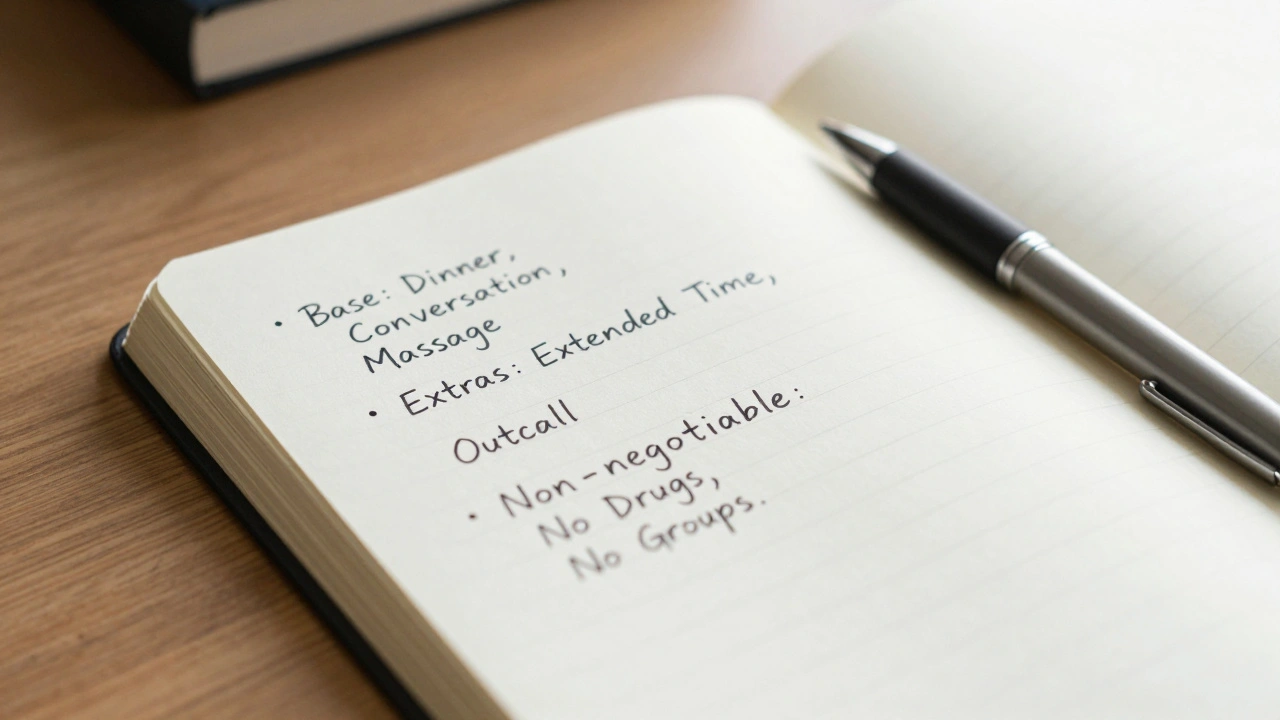 • Base: Dinner,
Conversation,
Massage
• Extras: Extended Time,
Outcall
• Non-negotiable:
No Drugs,
No Groups.